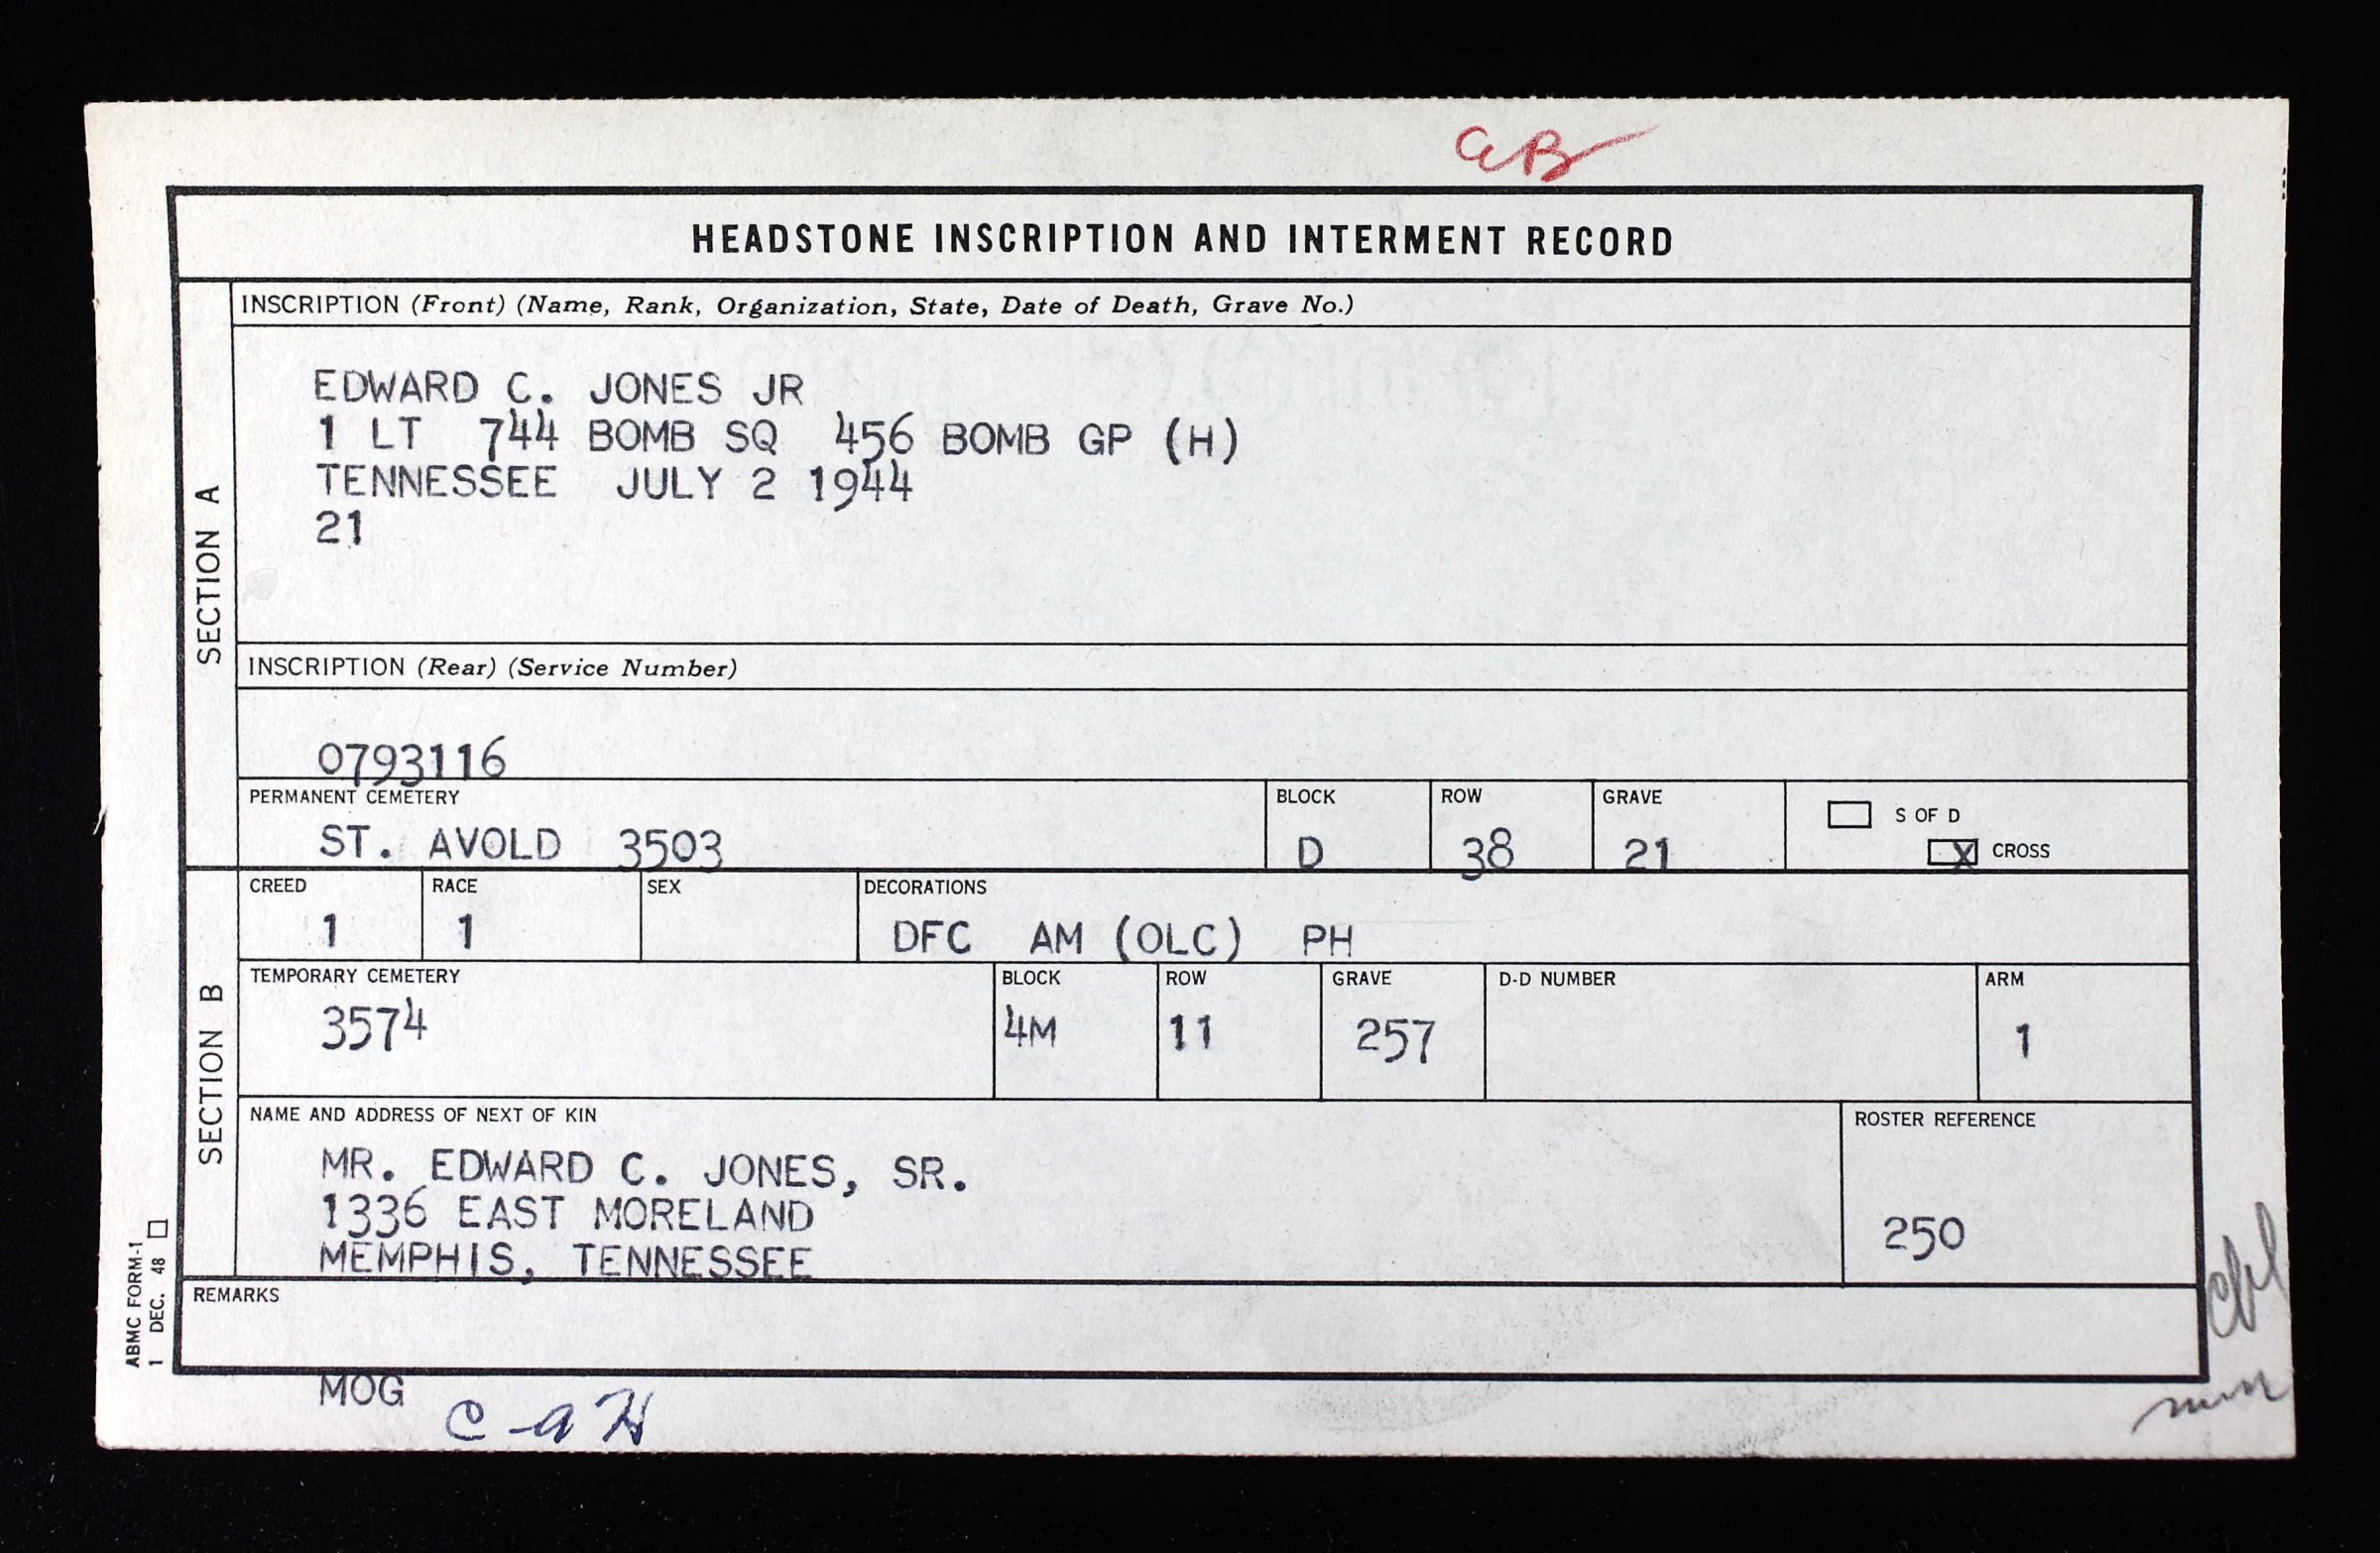 aB
HEADSTONE INSCRIPTION AND INTERMENT RECORD
SECTION A
INSCRIPTION (Front) (Name, Rank, Organization, State, Date of Death, Grave No.)
EDWARD C. JONES JR
1 LT 744 BOMB SQ 456 BOMB GP (H)
TENNESSEE JULY 2 1944
21
INSCRIPTION (Rear) (Service Number)
0793116
PERMANENT CEMETERY BLOCK ROW GRAVE S OF D
ST. AVOLD 3503 D 38 21 X CROSS
SECTION B
CREED RACE SEX DECORATIONS
1 1 DFC AM (OLC) PH
TEMPORARY CEMETERY BLOCK ROW GRAVE D-D NUMBER ARM
3574 4M 11 257 1
NAME AND ADDRESS OF NEXT OF KIN ROSTER REFERENCE
MR. EDWARD C. JONES, SR.
1336 EAST MORELAND 250
MEMPHIS, TENNESSEE
REMARKS
ABMC FORM-1
1 DEC. 48
MOG
C a H